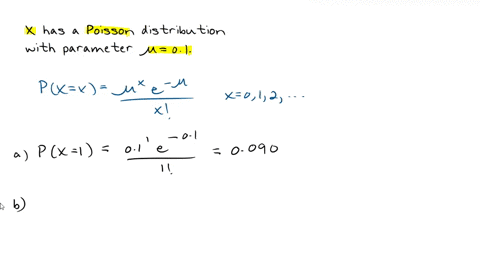 X has a Poisson distribution
with parameter μ = 0.1.
P(X=x) = μ^x e^-μ / x!   x=0,1,2, ...
a) P(X=1) = 0.1^1 e^-0.1 / 1! = 0.090
b)